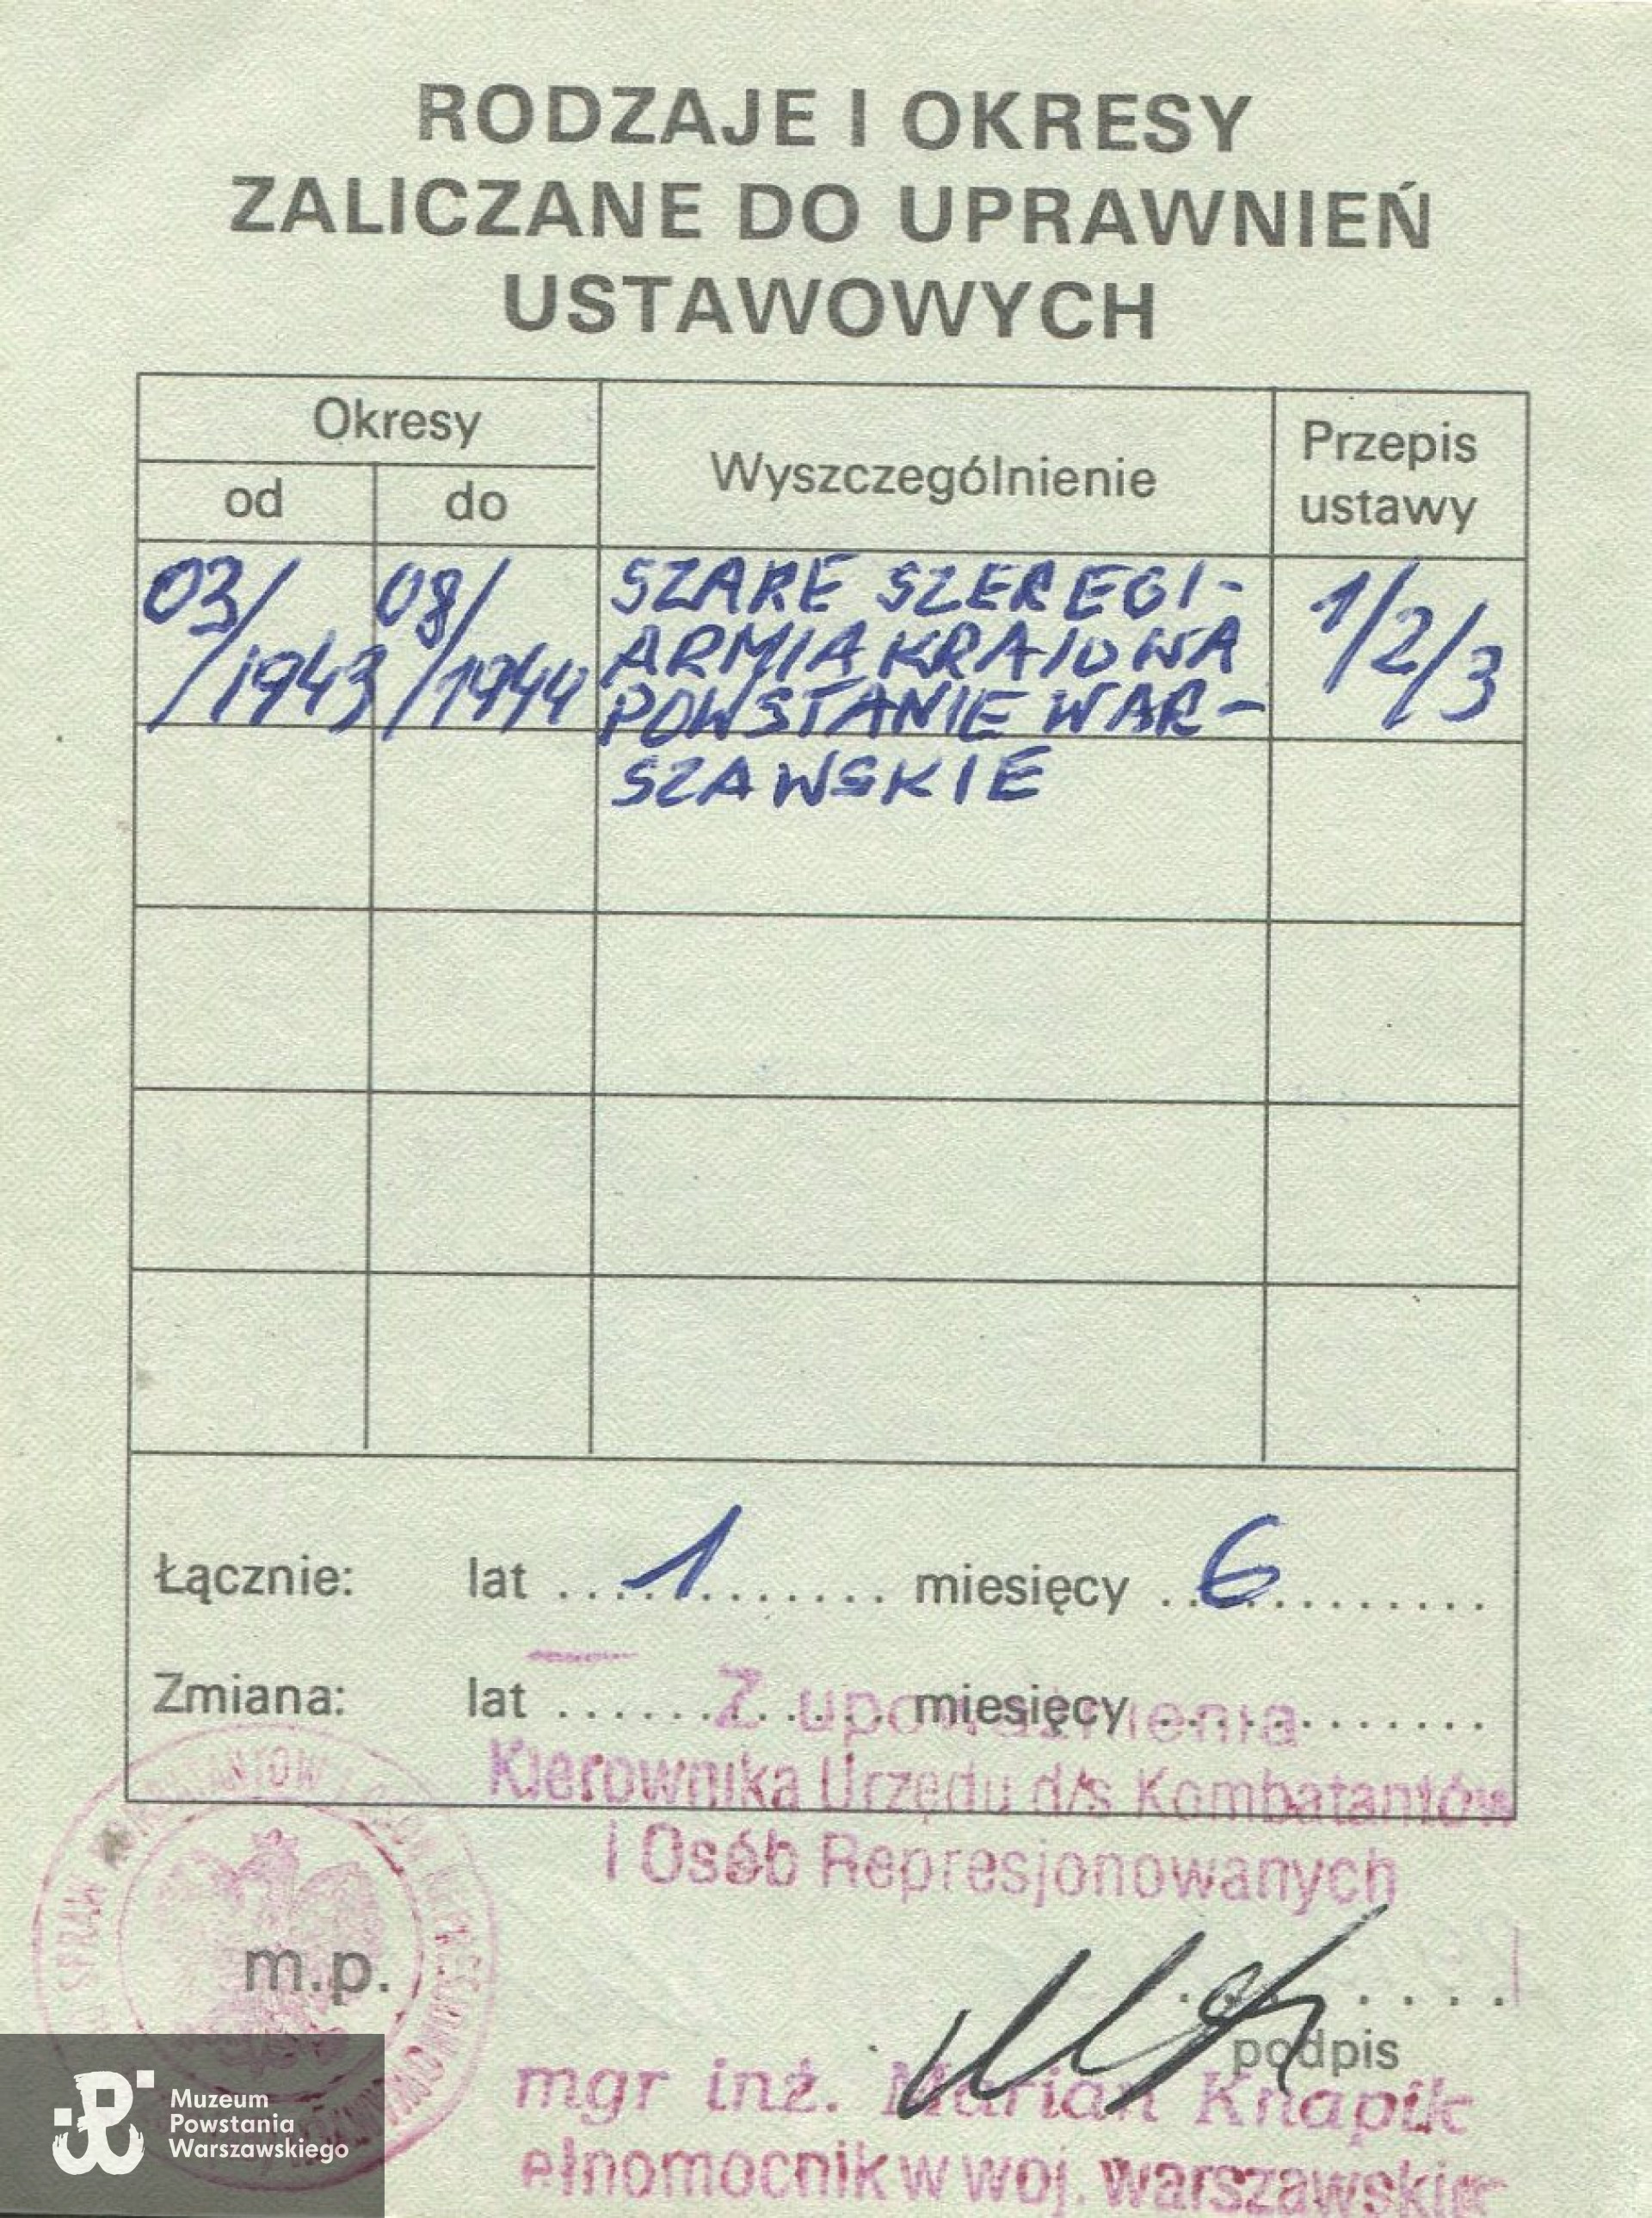 RODZAJE I OKRESY
ZALICZANE DO UPRAWNIEŃ
USTAWOWYCH
Okresy
od
do
Wyszczególnienie
Przepis
ustawy
03/
/1943
08/
/1944
SZARE SZEREGI-
ARMIA KRAJOWA
POWSTANIE WAR-
SZAWSKIE
1/2/3
Łącznie: lat ....1........ miesięcy ..6...........
Zmiana: lat ............. miesięcy .............
Z upoważnienia
Kierownika Urzędu d/s Kombatantów
i Osób Represjonowanych
m.p.
podpis
mgr inż. Marian Knapik
ełnomocnik w woj. warszawskim
SPRAW KOMBATANTÓW I OSÓB REPRESJONOWANYCH
Muzeum
Powstania
Warszawskiego